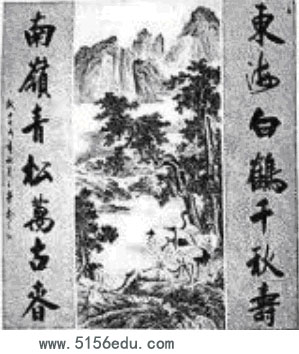 東海白鶴千秋壽
南嶺青松萬古春
www.5156edu.com